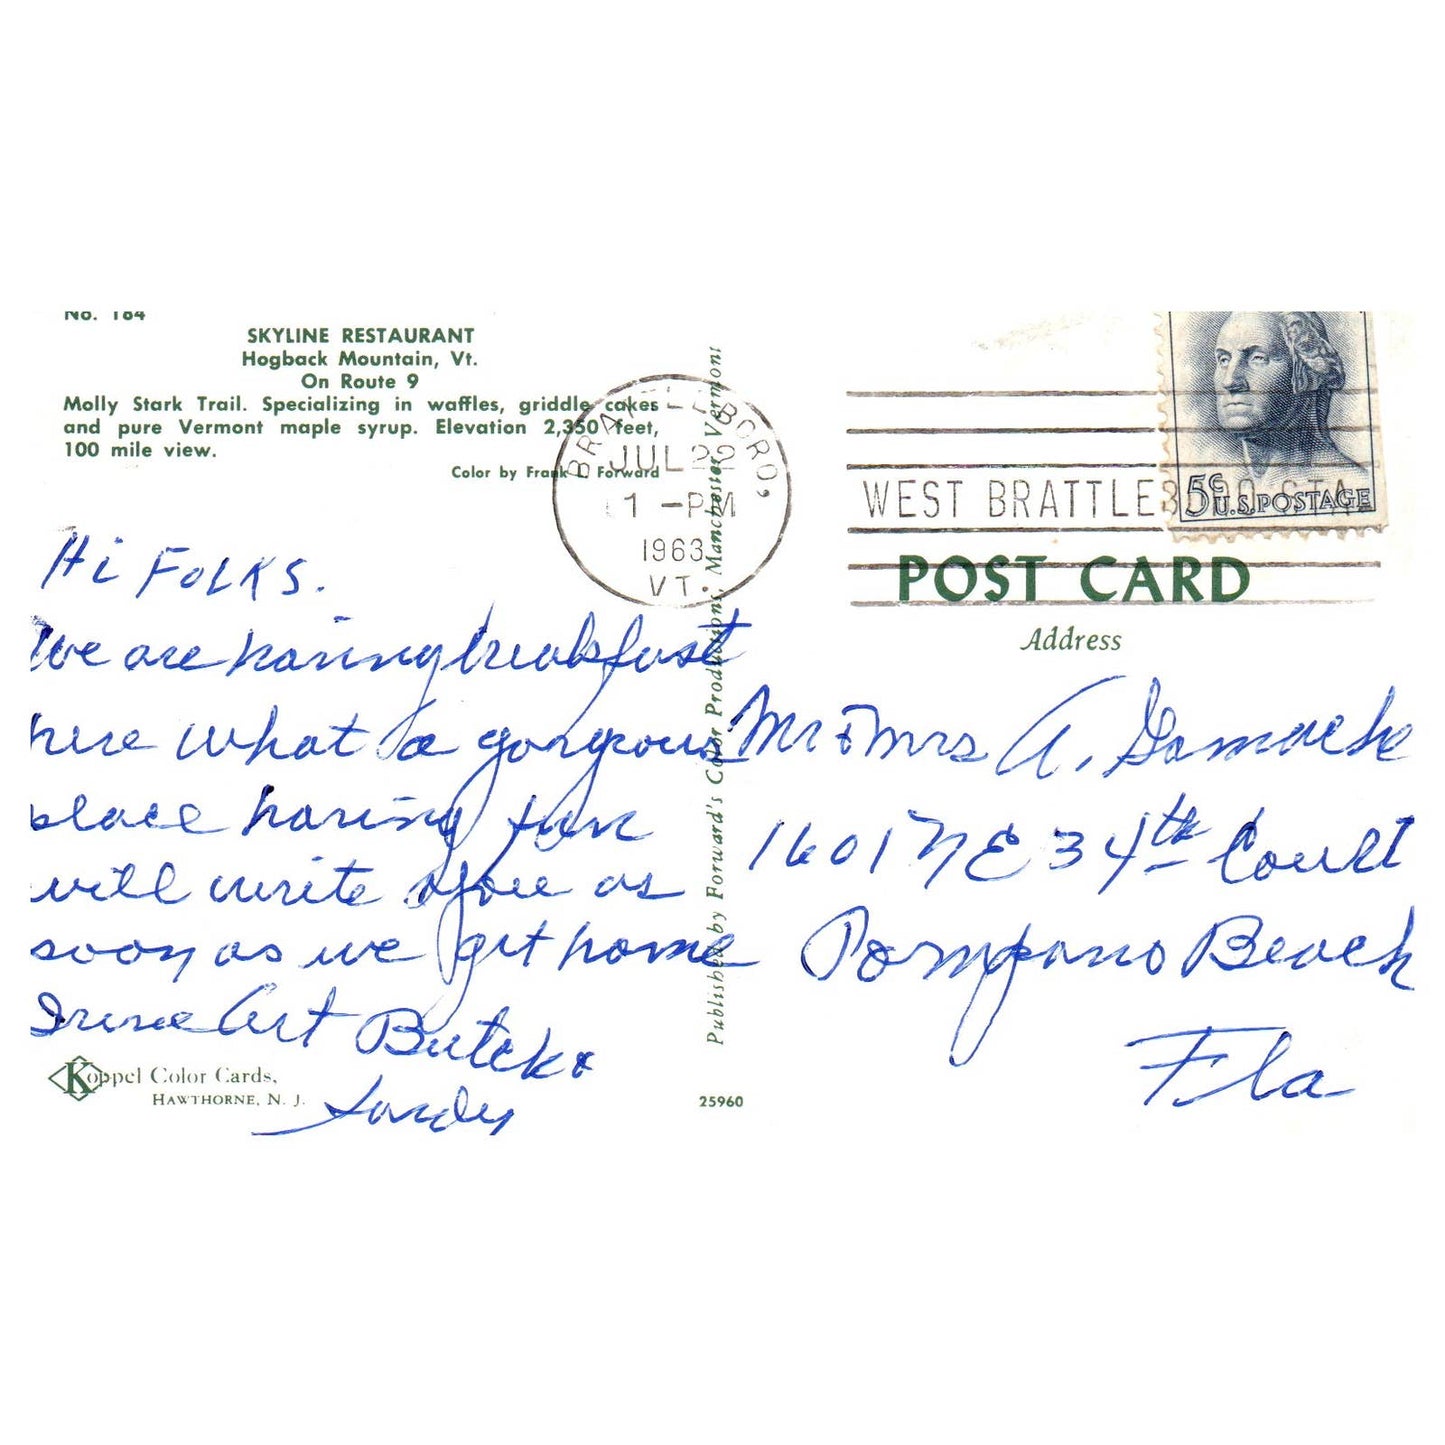 No. 184
SKYLINE RESTAURANT
Hogback Mountain, Vt.
On Route 9
Molly Stark Trail. Specializing in waffles, griddle cakes
and pure Vermont maple syrup. Elevation 2,350 feet,
100 mile view.
Color by Frank L Forward
Hi FOLKS.
We are having breakfast
here what a gorgeous
place having fun
will write you as
soon as we get home
Irene Art
Koppel Color Cards,
HAWTHORNE, N. J.
Published by Forward's Color Productions, Manchester, Vermont
25960
BRATTLEBORO,
JUL 22
1 -PM
1963
VT.
WEST BRATTLEBORO STA.
5¢
U.S. POSTAGE
POST CARD
Address
Mr & Mrs A.
1601 NE 34th Court
Pompano Beach
Fla